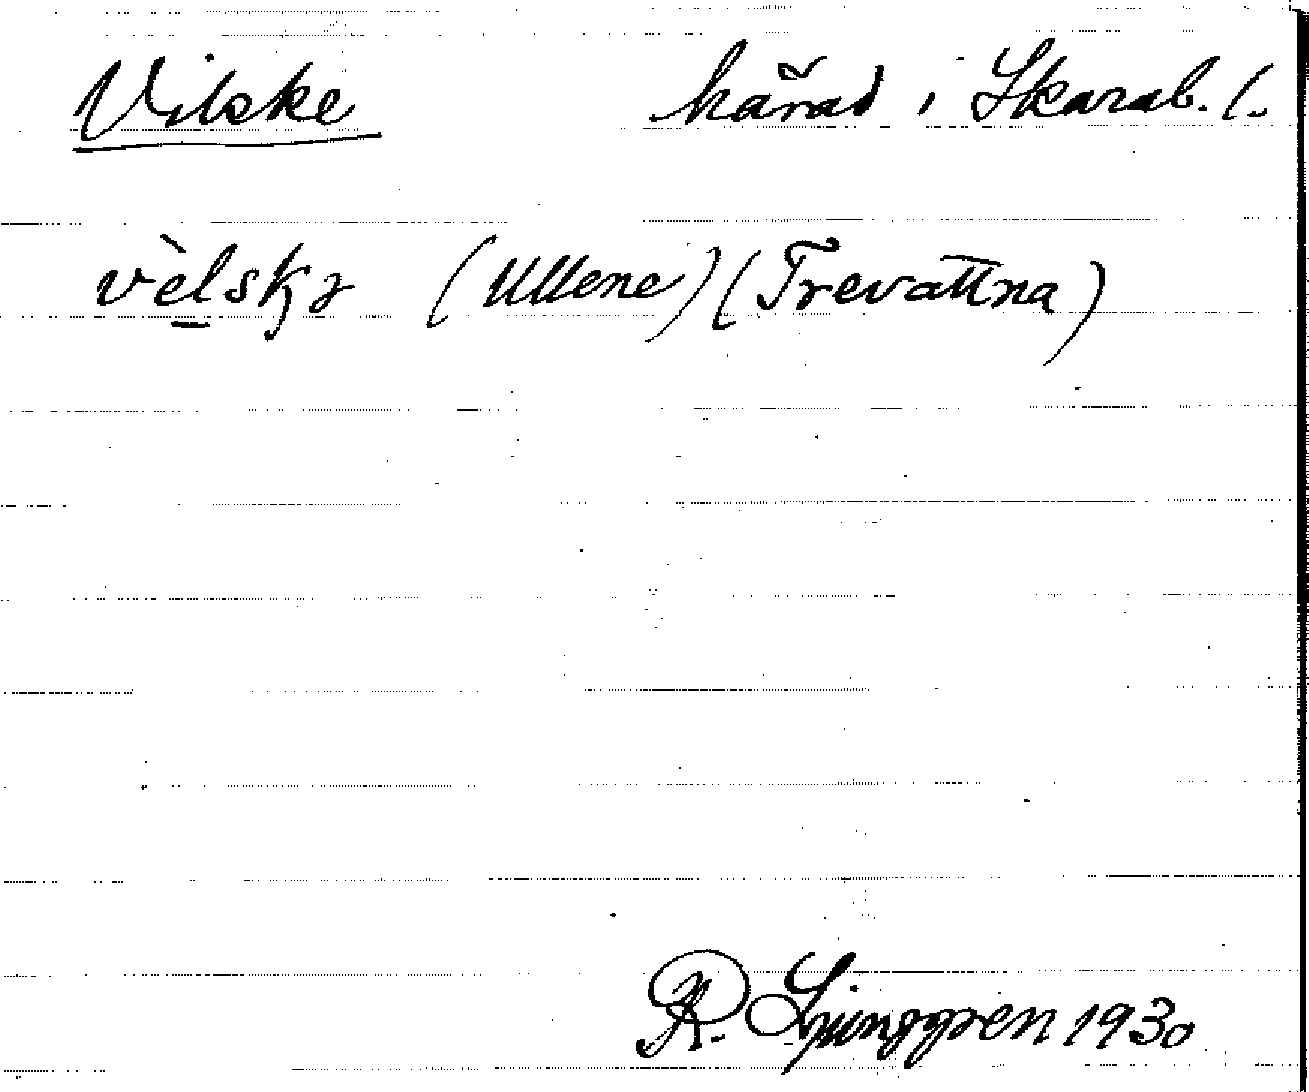 Vilske härad i Skarab. l.
vèlskə (Ullene) (Trevattna)
R. Ljunggren 1930